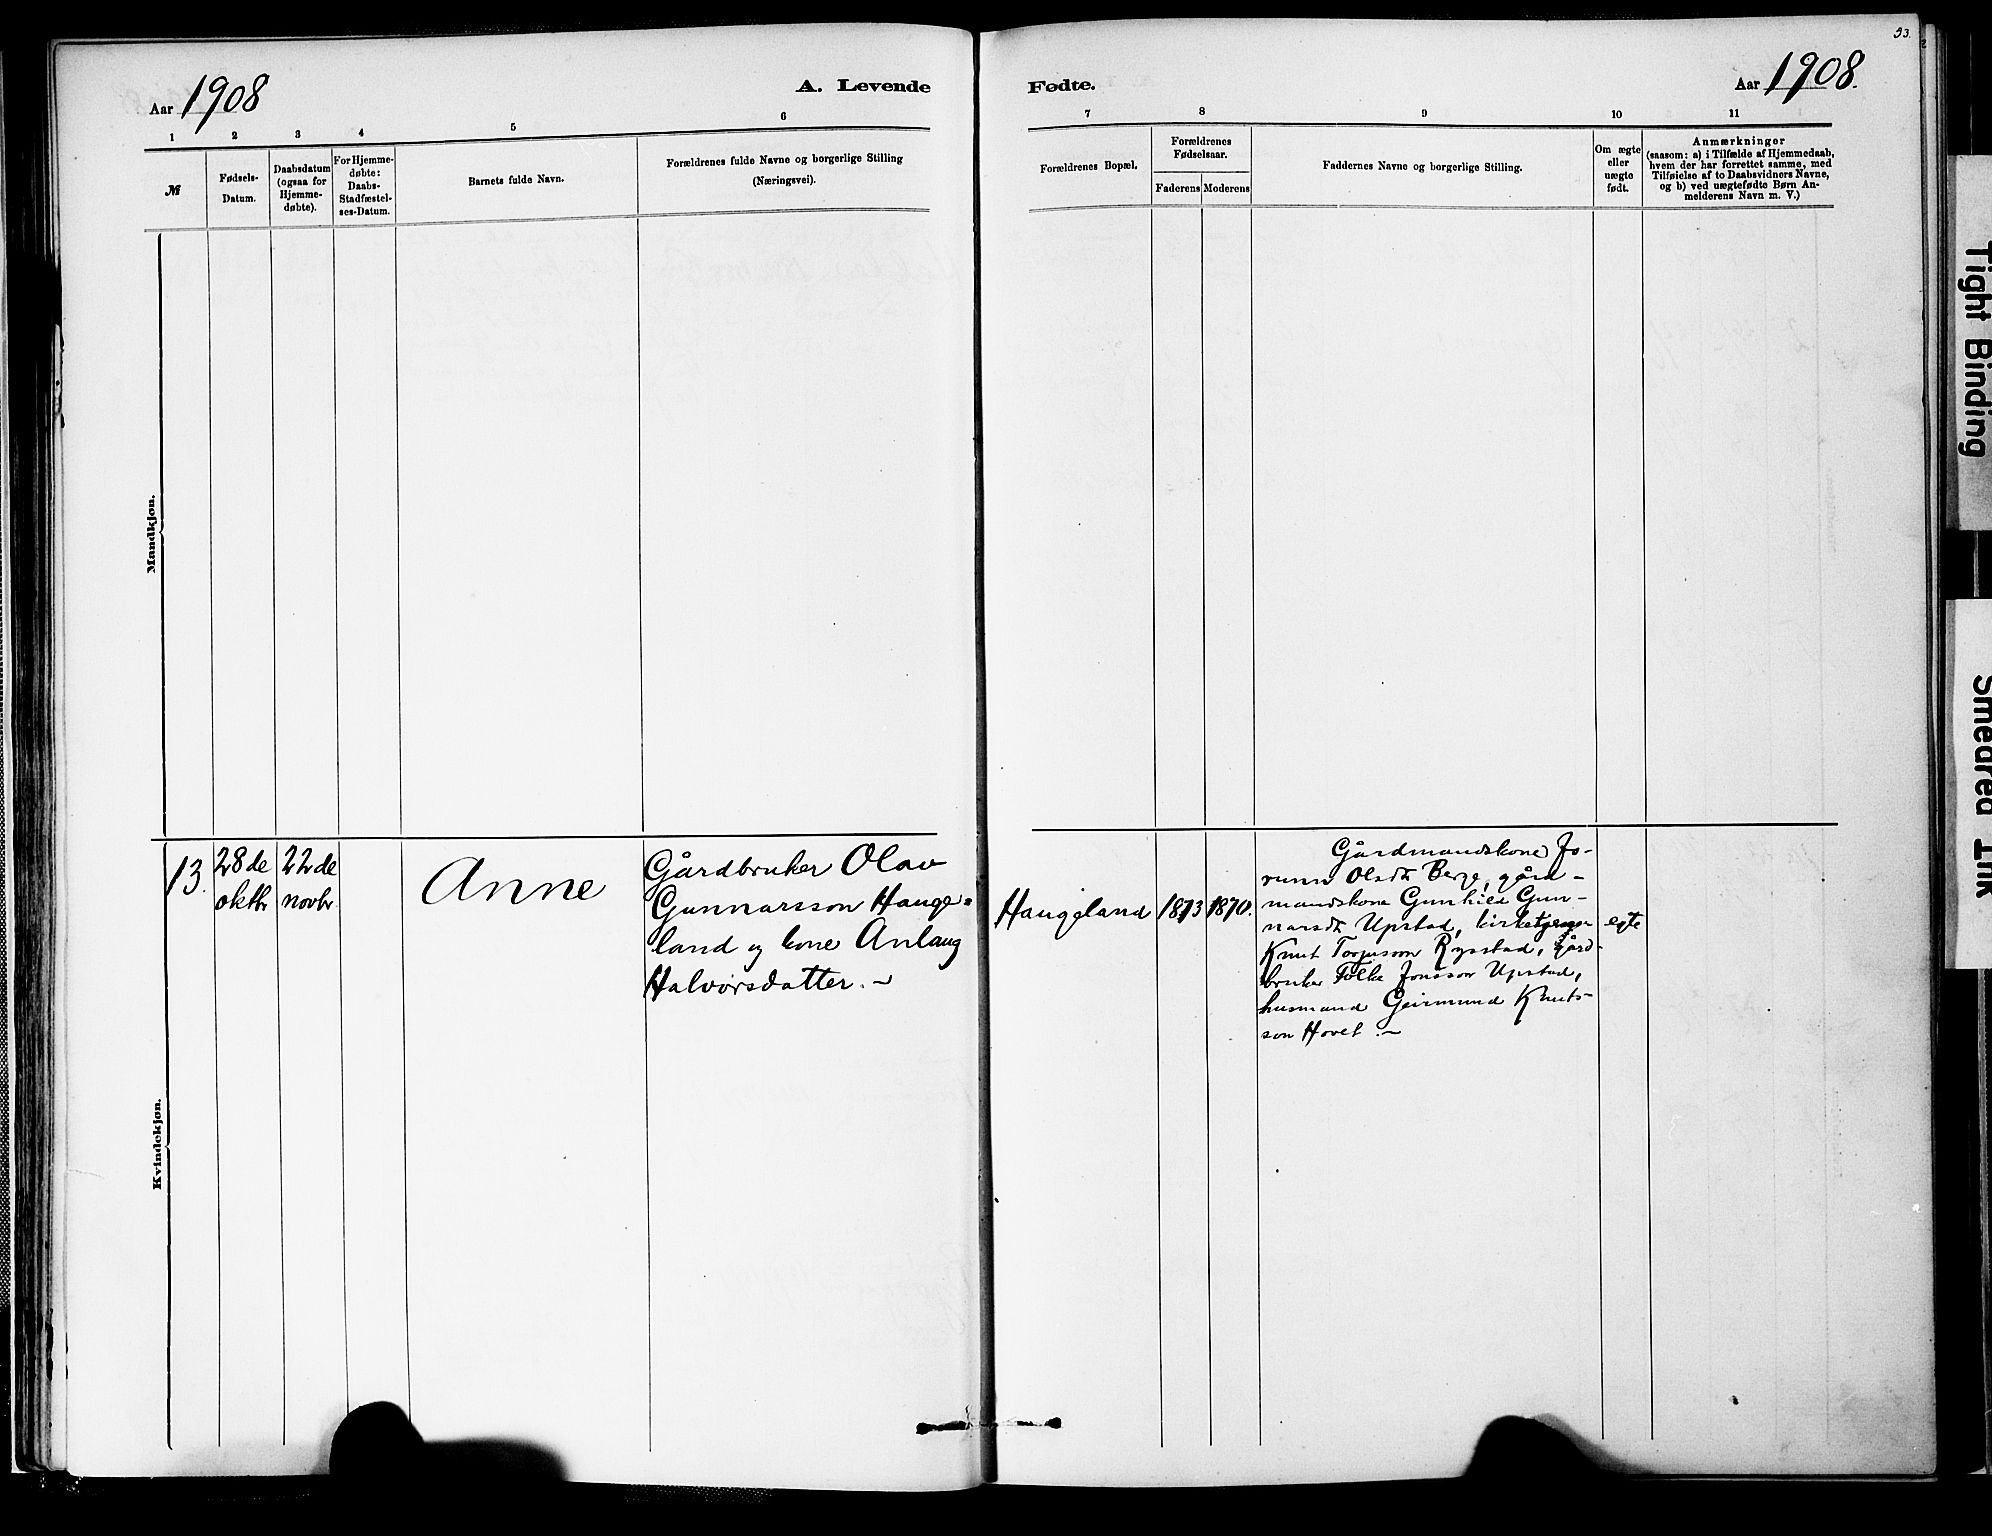 53.
Aar 1908
A. Levende
Fødte.
Aar 1908.
1
2
3
4
5
6
7
8
9
10
11
№
Fødsels-
Datum.
Daabsdatum
(ogsaa for
Hjemme-
døbte).
For Hjemme-
døbte:
Daabs-
Stadfæstel-
ses-Datum.
Barnets fulde Navn.
Forældrenes fulde Navne og borgerlige Stilling
(Næringsvei).
Forældrenes Bopæl.
Forældrenes
Fødselsaar.
Faderens
Moderens
Faddernes Navne og borgerlige Stilling.
Om ægte
eller
uægte
født.
Anmærkninger
(saasom: a) i Tilfælde af Hjemmedaab,
hvem der har forrettet samme, med
Tilføielse af to Daabsvidners Navne,
og b) ved uægtefødte Børn An-
melderens Navn m. V.)
Mandkjøn.
Kvindekjøn.
13.
28de
oktbr
22de
novbr.
Anne
Gårdbruker Olav
Gunnarsson Hauge=
land og kone Anlaug
Halvorsdatter. ~
Haugeland
1873
1870.
Gårdmandskone Jo-
runn Olsdt Berge, gård-
mandskone Gunhild Gun-
narsdt Upstad, kirketjener
Knut Torjusson Rysstad, gård-
bruker Folke Jonsson Upstad,
husmand Geirmund Knuts-
son Hovet. ~
egte
Tight Binding
Smeared Ink